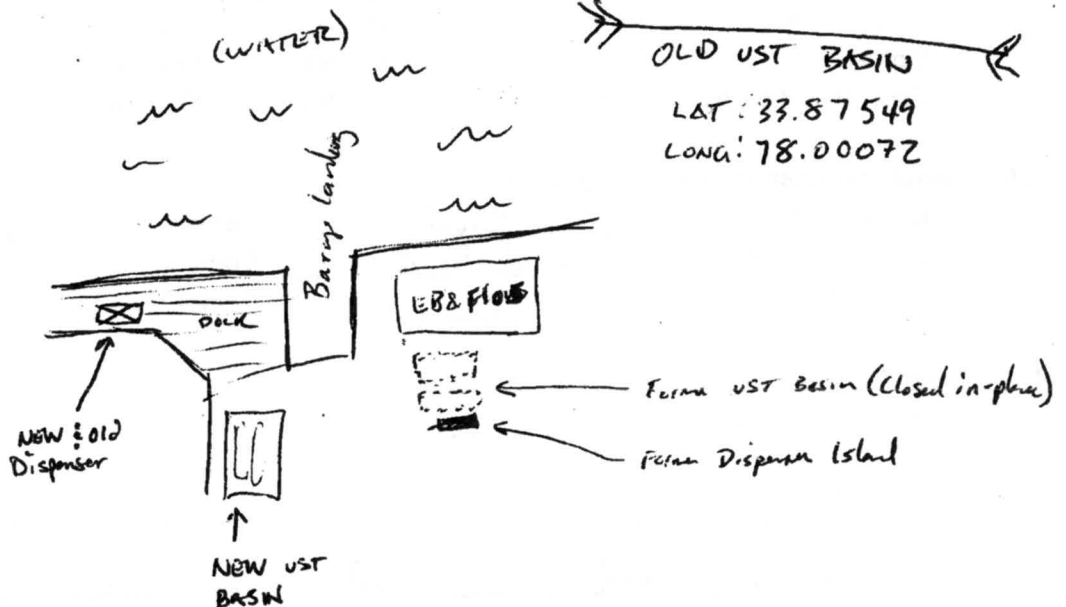 (WATER)
OLD UST BASIN
LAT: 33.87549
LONG: 78.00072
Barge landing
EB & Flo's
DOCK
Former UST Basin (Closed in-place)
Former Dispenser Island
NEW & Old
Dispenser
NEW UST
BASIN